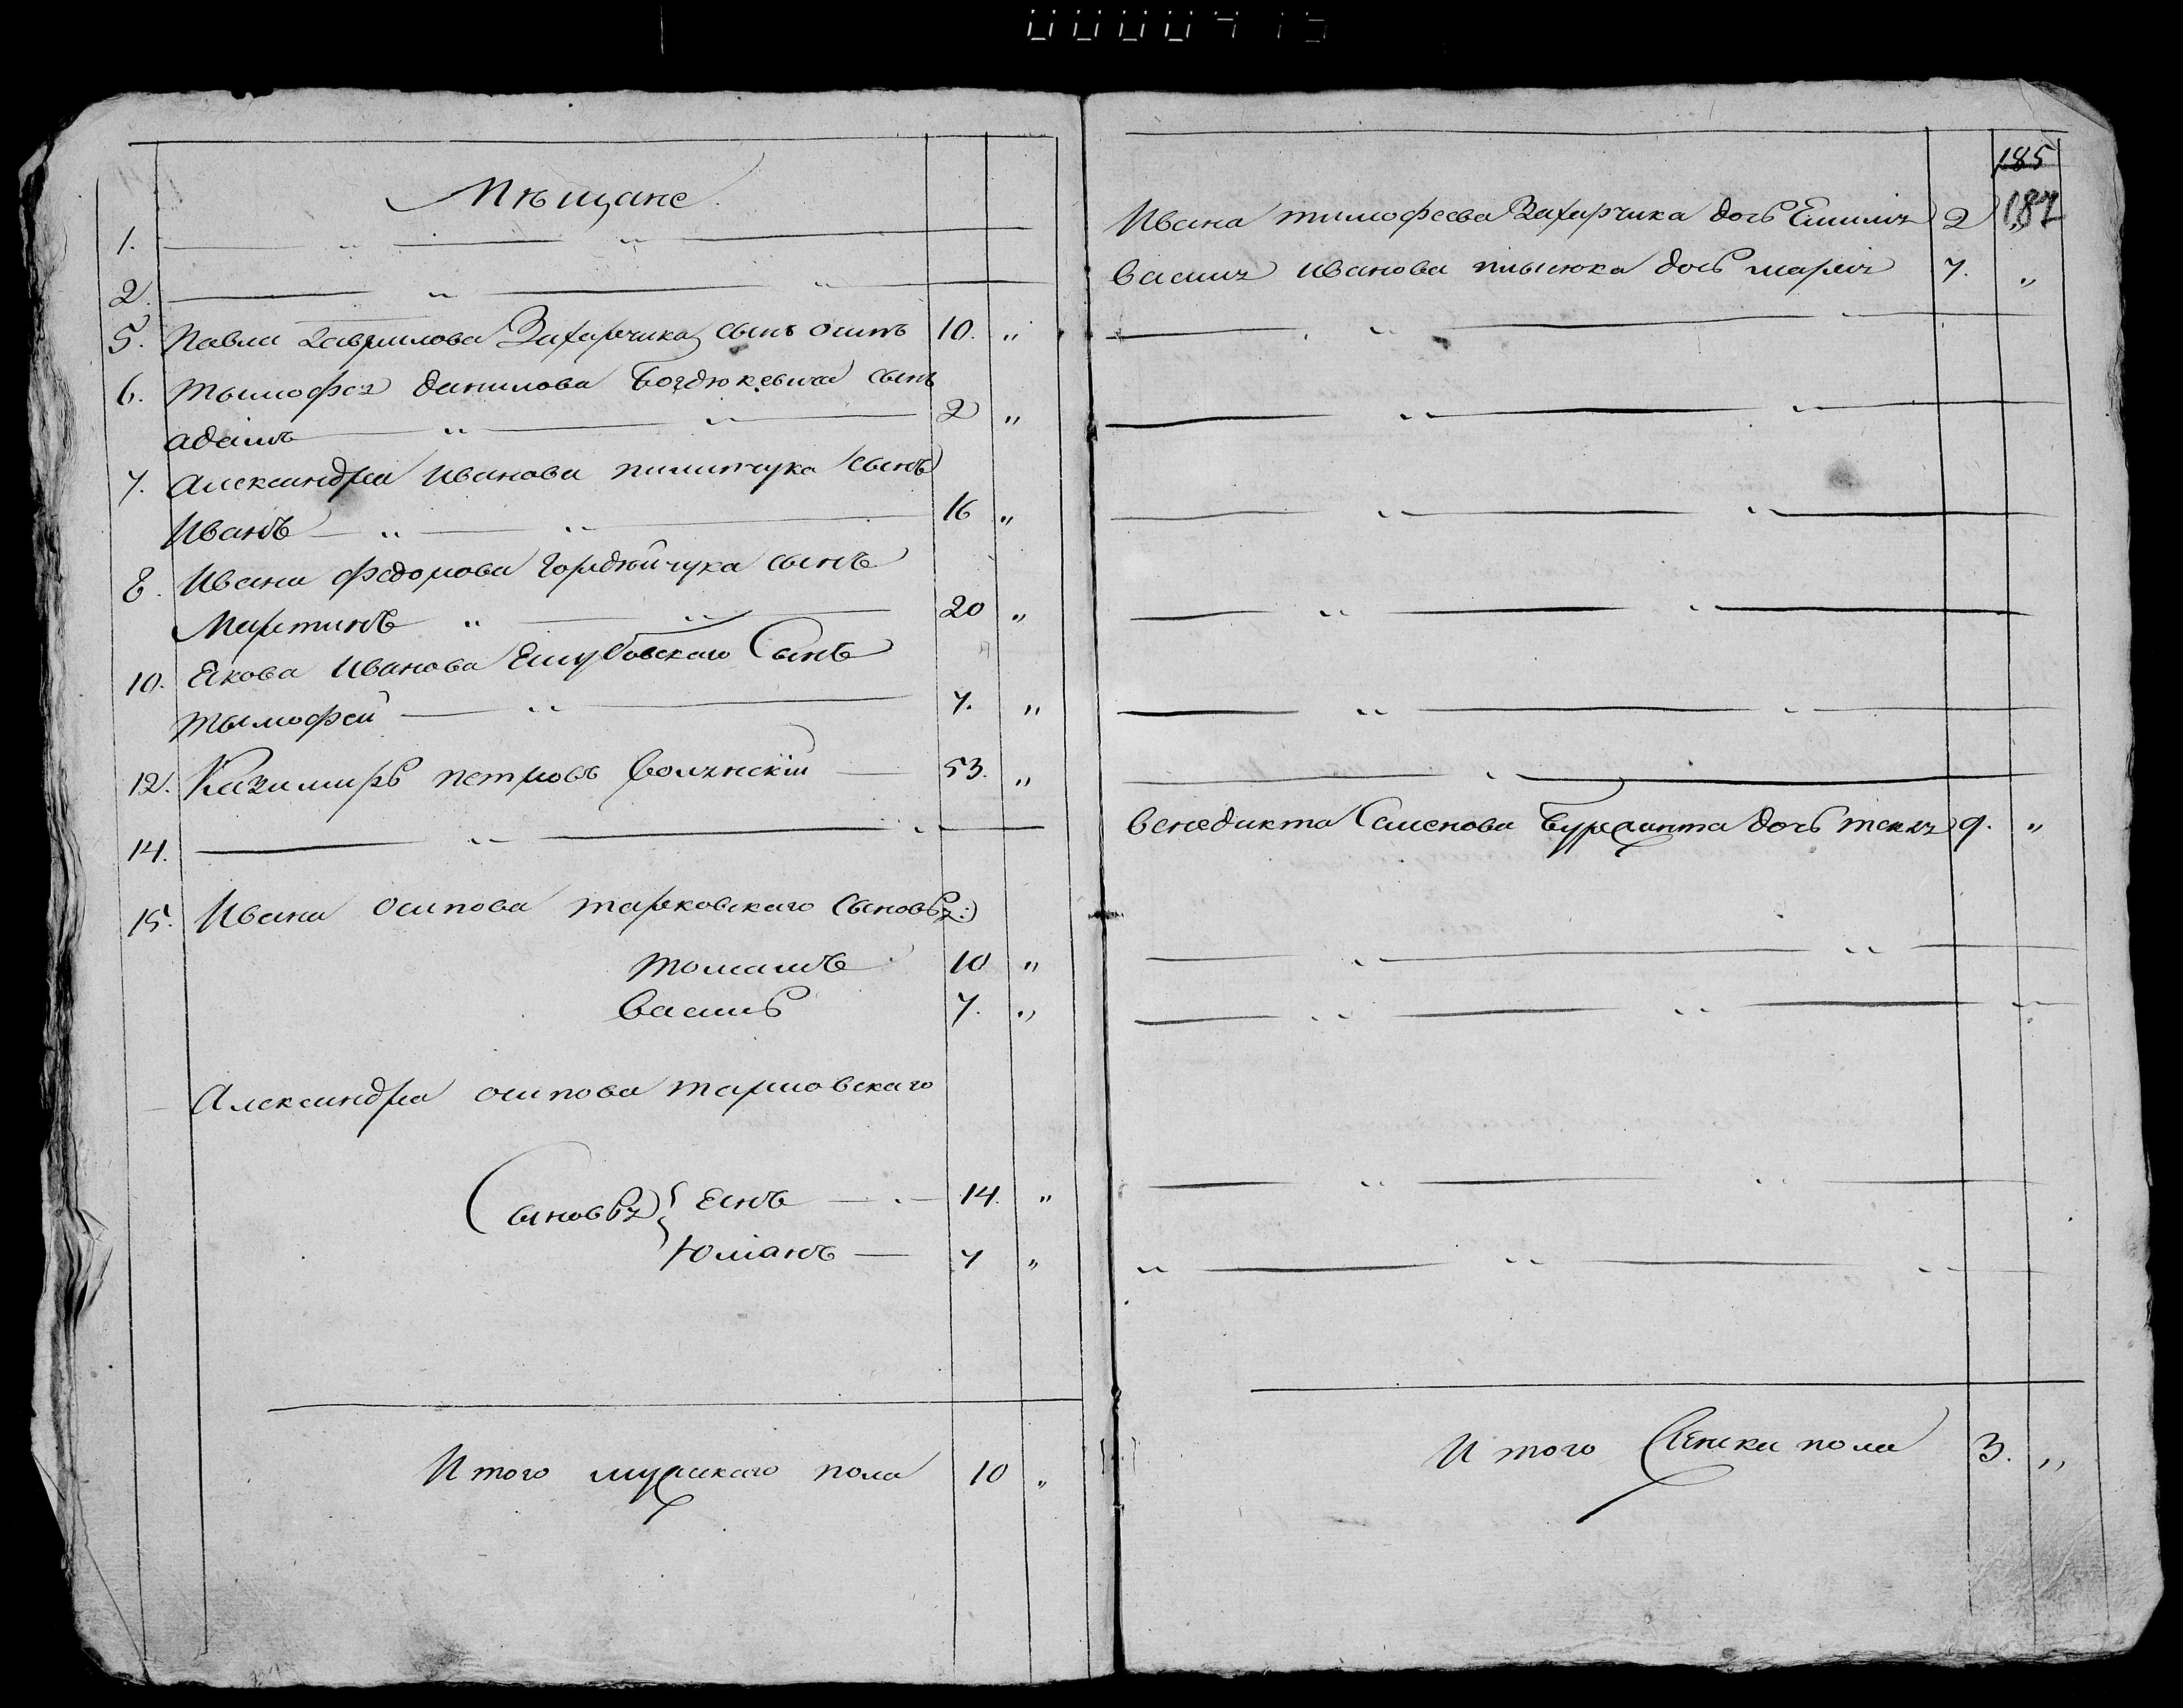 0000415
Мѣщане.
1.
2.
5. Павла Гаврилова Захарчика сынъ осипъ 10. „
6. Тымофея Данилова Богдюкевича сынъ
адамъ 2 „
7. Александра Иванова пилипчука сынъ
Иванъ 16 „
8. Ивана Федорова Гордѣйчука сынъ
Мартинъ 20 „
10. Якова Иванова сынъ
Тымофей 7. „
12. Казимиръ петровъ 53. „
14.
15. Ивана осипова тарковскаго сыновья:
томашъ 10 „
василь 7. „
Александра осипова тарковскаго
сыновья { Янъ 14. „
Юліанъ 7 „
Итого мужскаго пола 10 „
185
187
Ивана тимофеева Захарчика дочь Емилія 2 „
василя Иванова дочь марія 7. „
венедикта Семенова дочь текля 9. „
Итого женска пола 3. „